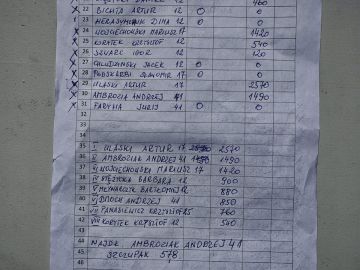 460
X 22 BICHTA ARTUR 12 0 0
X 23 HERASYMIUK DIMA 12 0 0
X 24 WOJCIECHOWSKI MARIUSZ 17 1420
X 25 KORYTEK KRZYSZTOF 12 540
X 26 SZWARC IGOR 12 120
X 27 JACEK 12 0 0
X 28 PODSKARBI SŁAWOMIR 17 0 0
X 29 HLASKI ARTUR 17 2570
X 30 AMBROZIAK ANDRZEJ 41 1490
X 31 PARYNIA JURIJ 41 0 0
32
33
34
35 I HLASKI ARTUR 17 2570
36 II AMBROZIAK ANDRZEJ 41 1490
37 III WOJCIECHOWSKI MARIUSZ 17 1420
38 IV BARBARA 12 900
39 V BARTŁOMIEJ 12 880
40 VI ANDRZEJ 41 850
41 VII PANASIEWICZ KRZYSZTOF 25 760
42 VIII KORYTEK KRZYSZTOF 12 540
43
44 NAJDŁ. AMBROZIAK ANDRZEJ 41
45 SZCZUPAK 578
46